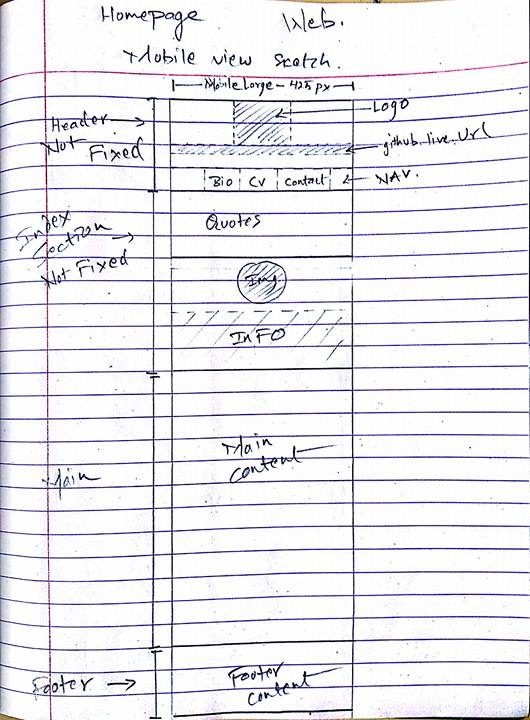 Homepage Web.
Mobile view scetch.
Mobile Large - 425 px
Logo
Header
Not Fixed
github.live.Url
Bio CV Contact
NAV.
Index Section
Not Fixed
Quotes
Img
INFO
Main
Main content
Footer
Footer content